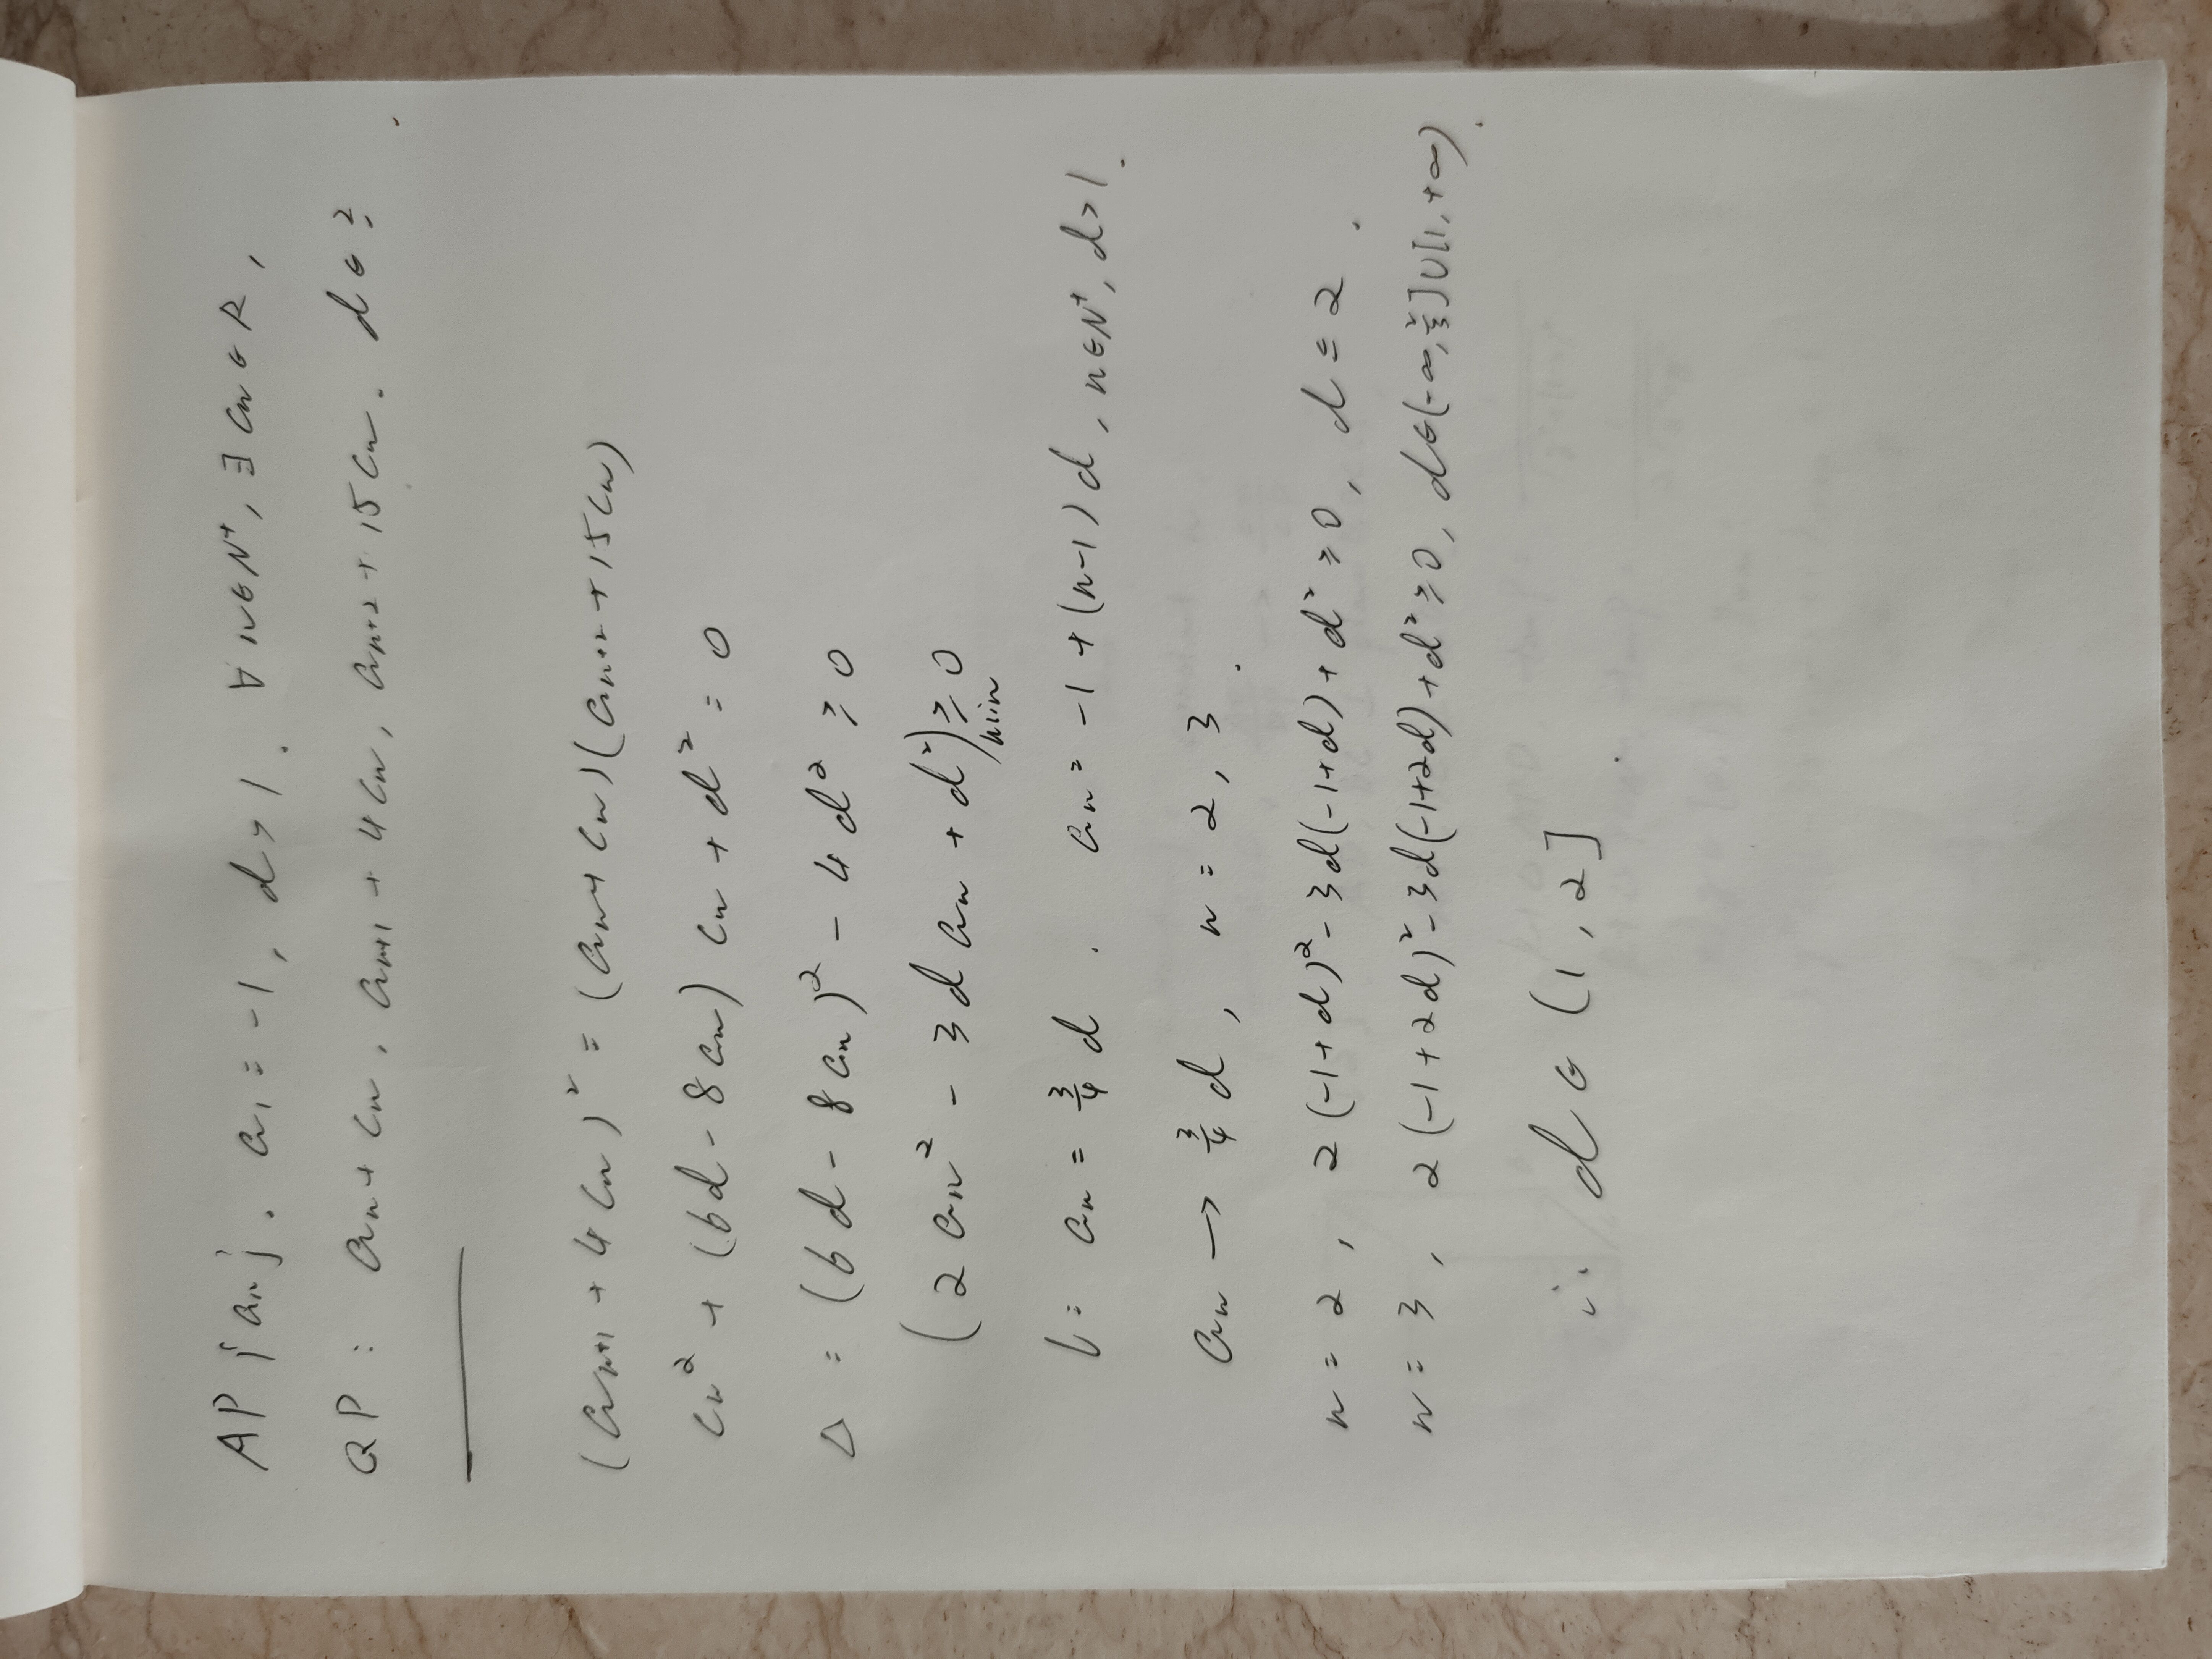 AP {aₙ}. a₁ = -1, d > 1. ∀ n∈N⁺, ∃ cₙ∈R,
QP : aₙ + cₙ, aₙ₊₁ + 4cₙ, aₙ₊₂ + 15cₙ. d∈?
(aₙ₊₁ + 4cₙ)² = (aₙ + cₙ)(aₙ₊₂ + 15cₙ)
cₙ² + (6d - 8aₙ) cₙ + d² = 0
Δ = (6d - 8aₙ)² - 4d² ≥ 0
(2aₙ² - 3daₙ + d²)min ≥ 0
l: aₙ = ¾ d. aₙ = -1 + (n-1)d, n∈N⁺, d>1.
aₙ → ¾ d, n = 2, 3.
n = 2, 2(-1+d)² - 3d(-1+d) + d² ≥ 0, d ≤ 2.
n = 3, 2(-1+2d)² - 3d(-1+2d) + d² ≥ 0, d∈(-∞, ⅔]∪[1, +∞).
∴ d∈(1, 2].